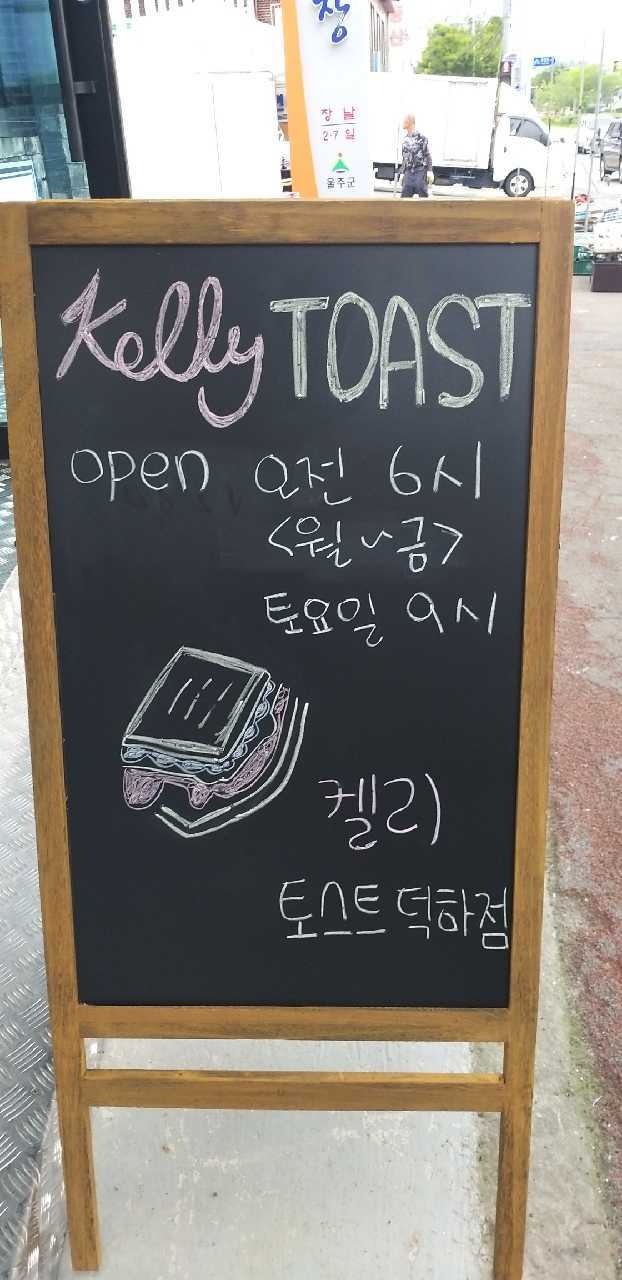 장
장날
2·7일
울주군
Kelly TOAST
open 오전 6시
<월~금>
토요일 9시
켈리
토스트 덕하점